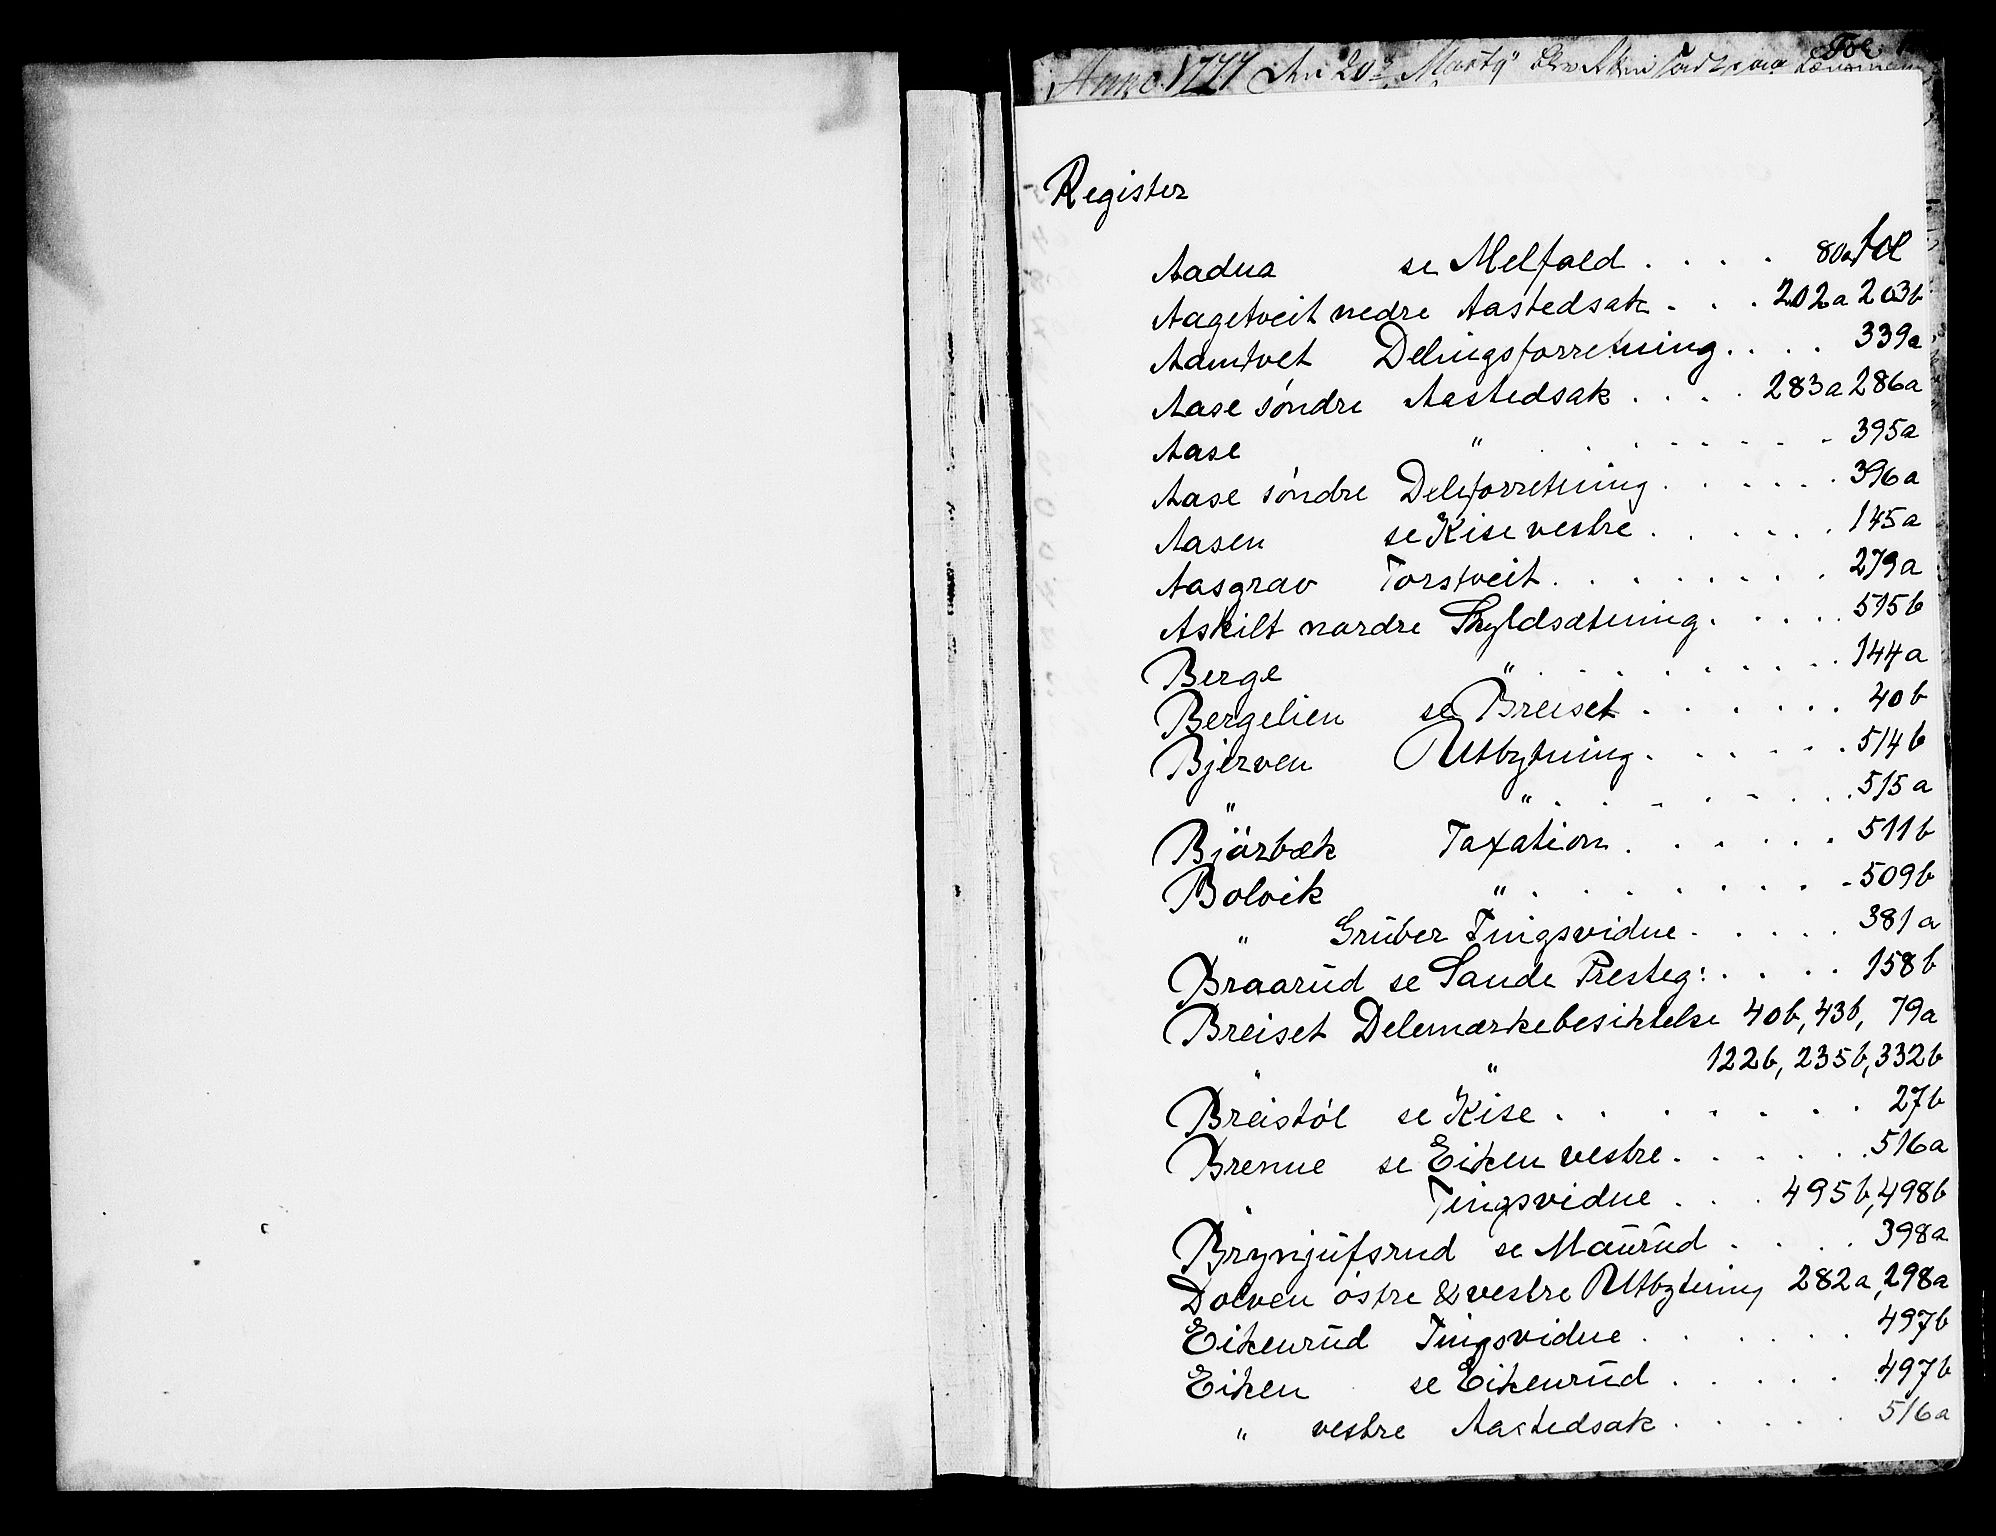 Anno 1777 den 20de Marty
Fol.
Register
Aadna se Melfald . . . . 80a fol
Aagetveit nedre Aastedsak . . . 202a 203b
Aamtvet Delingsforretning . . . . 339a
Aase søndre Aastedsak . . . . 283a 286a
Aase " . . . . . . 395a
Aase søndre Deleforretning . . . . . . 396a
Aasen se Kise vestre . . . . . . 145a
Aasgrav Torstveit . . . . . . . 279a
Askilt nordre Skyldsætning . . . . . 515b
Berge " . . . . . . . 144a
Bergelien se Breiset . . . . . . 40b
Bjerven Utbytning . . . . . . 514b
" " . . . . . . . 515a
Bjärbæk Taxation . . . . . . 511b
Bolvik " . . . . . . . 509b
" Grüber Tingsvidne . . . . . 381a
Braarüd se Sande Presteg: . . . . 158b
Breiset Delemærkebesiktelse 40b, 43b, 79a
" " 122b, 235b, 332b
Breistöl se Kise . . . . . . . 27b
Brenne se Eiken vestre . . . . . . 516a
" Tingsvidne . . . 495b, 498b
Brynjüfsrud se Maürüd . . . . 398a
Dolven östre & vestre Utbytning 282a, 298a
Eikenrüd Tingsvidne . . . . . . 497b
Eiken se Eikenrüd . . . . . . 497b
" vestre Aastedsak . . . . . 516a